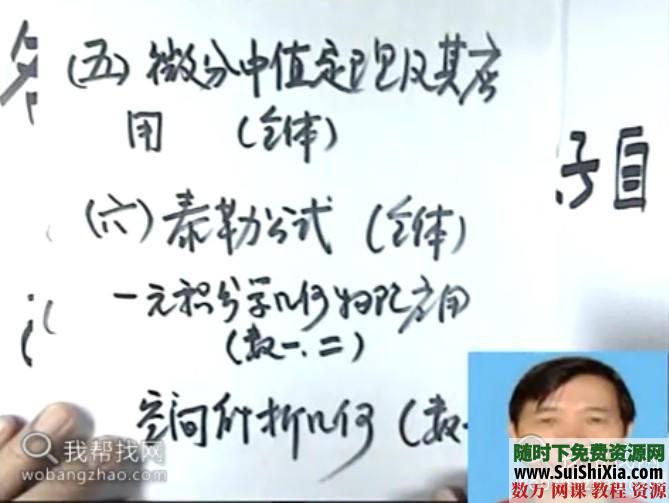 (五) 微分中值定理及其应
用 (全体)
(六) 泰勒公式 (全体)
一元积分学几何物理应用
(数一.二)
空间解析几何 (数一
目
我帮找网
wobangzhao.com
随时下免费资源网
www.SuiShiXia.com
数万 网课 教程 资源